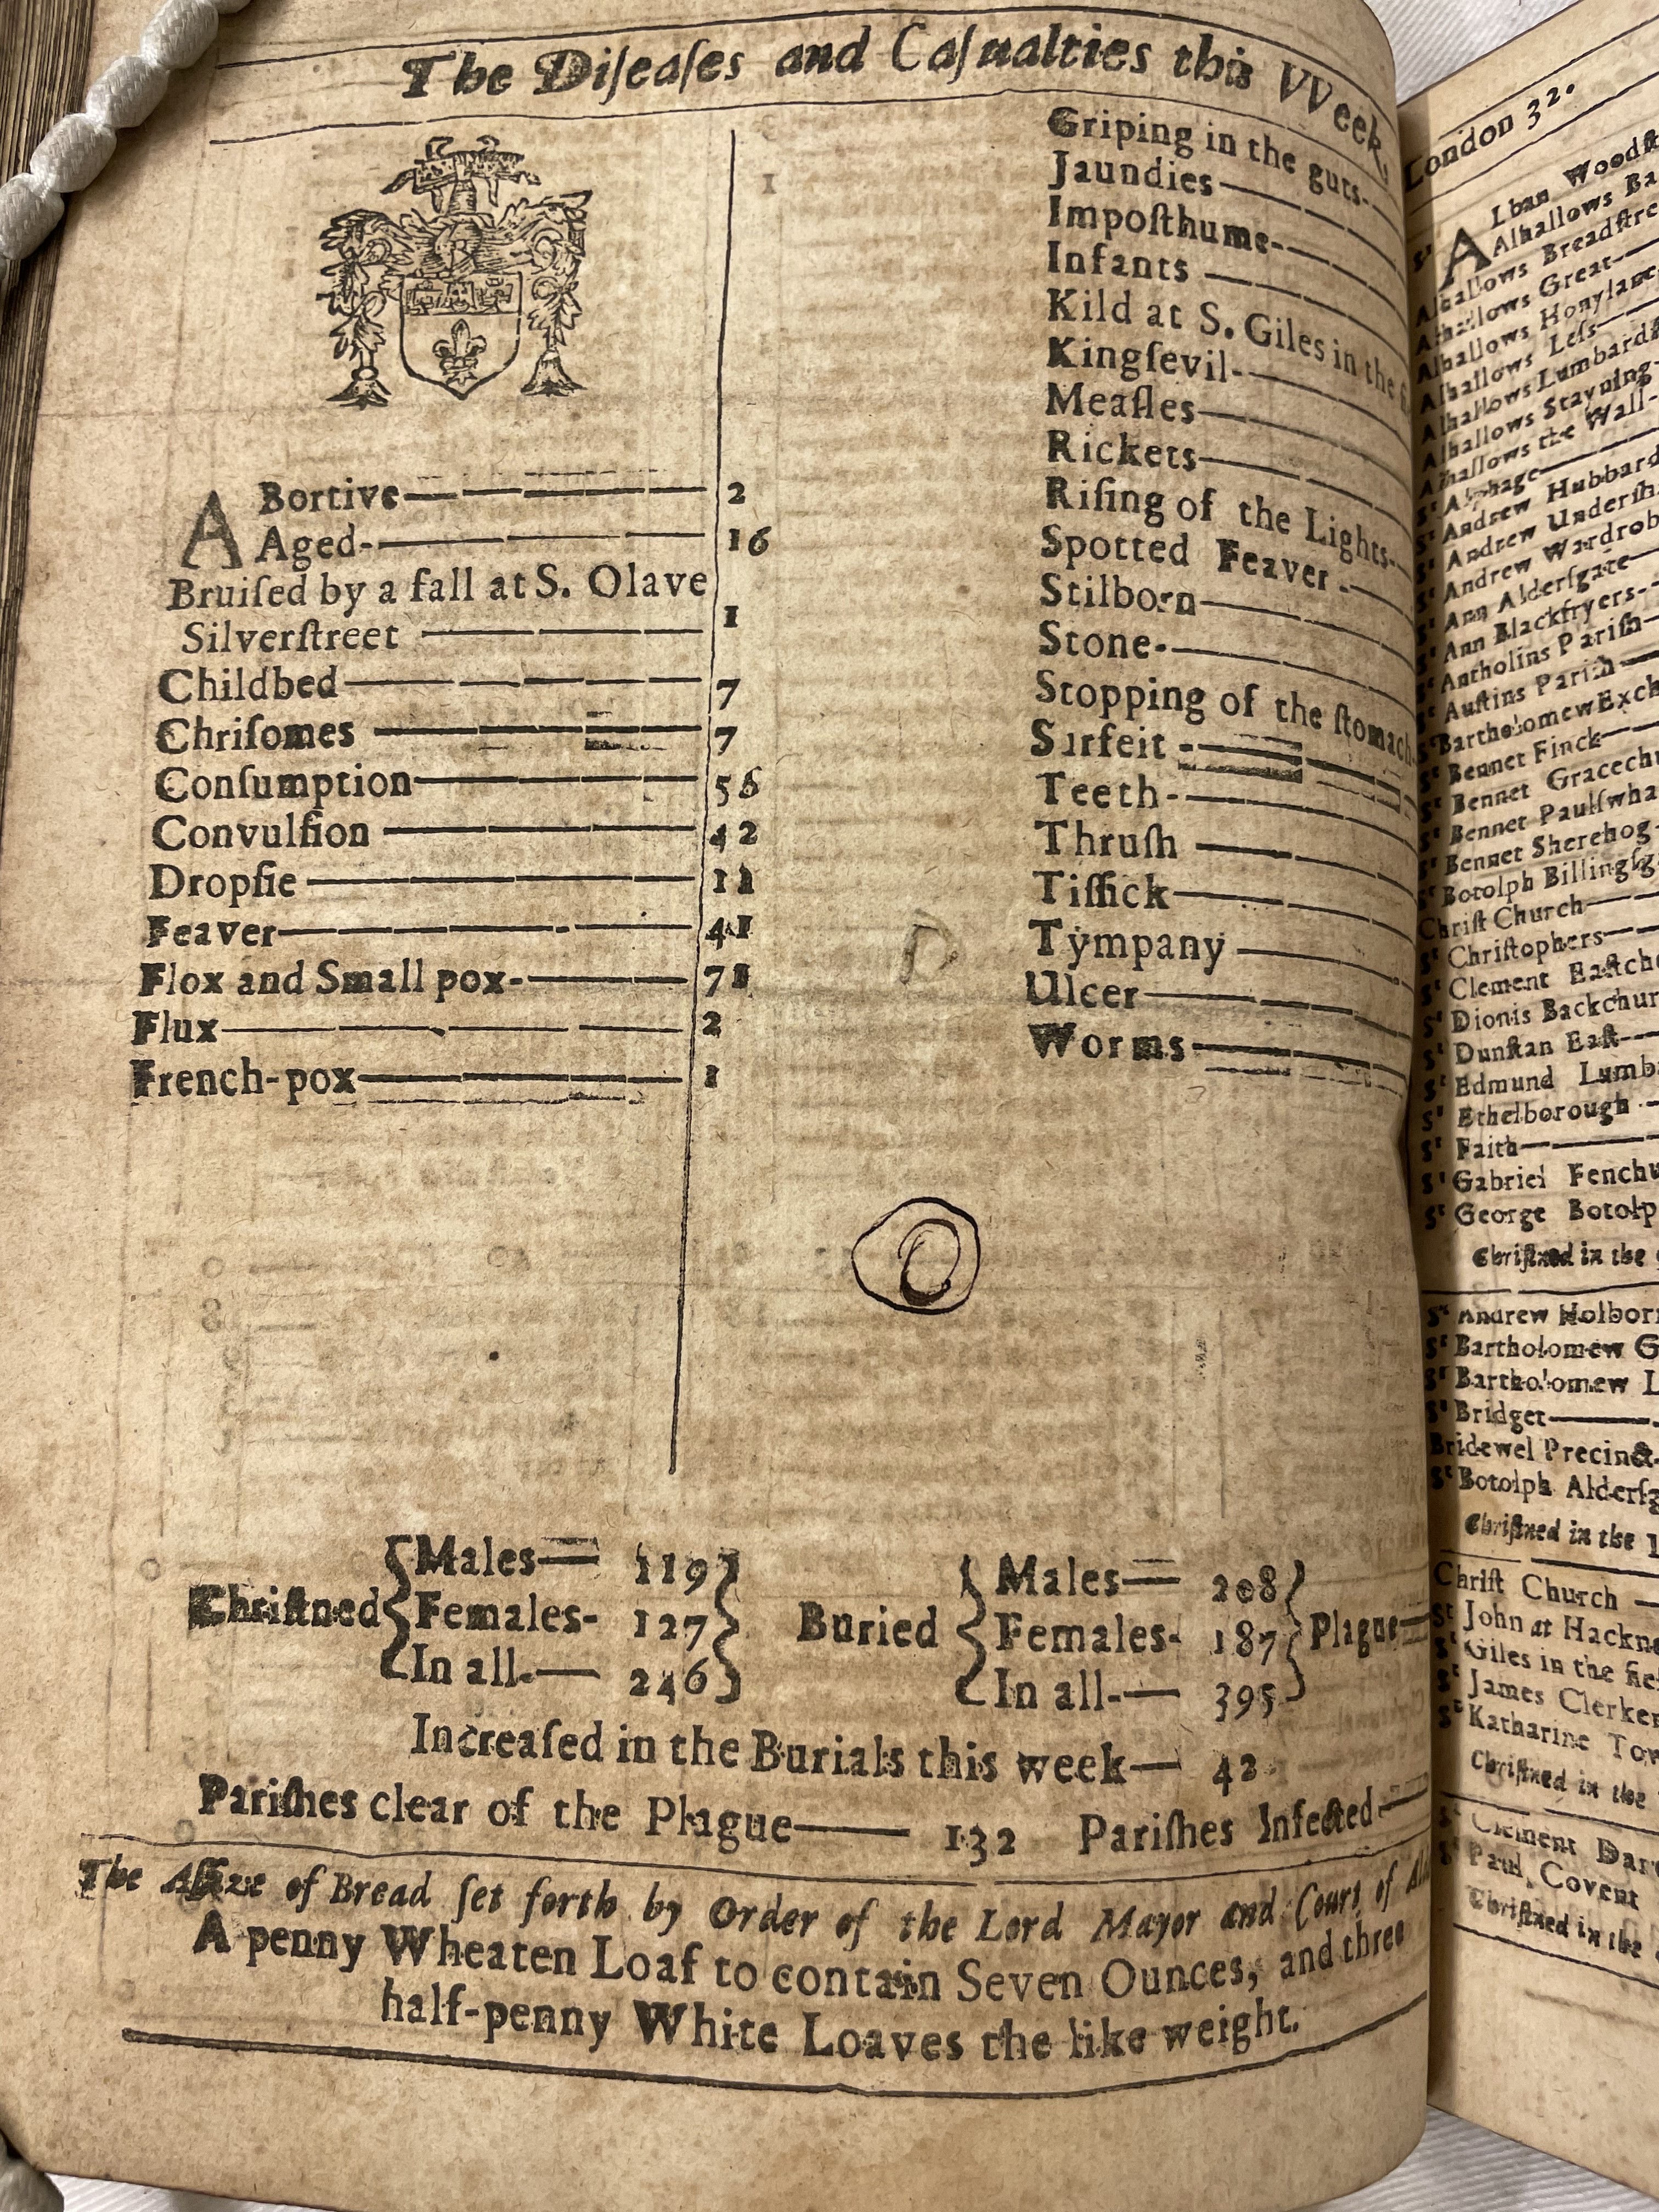 The Diſeaſes and Caſualties this VVeek,
ABortive 2
Aged 16
Bruiſed by a fall at S. Olave
Silverſtreet 1
Childbed 7
Chriſomes 7
Conſumption 56
Convulſion 42
Dropſie 11
Feaver 41
Flox and Small pox 71
Flux 2
French-pox 1
Griping in the guts
Jaundies
Impoſthume
Infants
Kild at S. Giles in the
Kingſevil
Meaſles
Rickets
Riſing of the Lights
Spotted Feaver
Stilborn
Stone
Stopping of the ſtomach
Surfeit
Teeth
Thruſh
Tiſſick
Tympany
Ulcer
Worms
Chriſtned
Males 119
Females 127
In all 246
Buried
Males 208
Females 187
In all 395
Plague
Increaſed in the Burials this week 42
Pariſhes clear of the Plague 132 Pariſhes Infected
The Aſſize of Bread ſet forth by Order of the Lord Mayor and Court of
A penny Wheaten Loaf to contain Seven Ounces, and three
half-penny White Loaves the like weight.
London 32.
Sᵗ ALban
Alhallows
Alhallows
Alhallows Great
Alhallows Honylane
Alhallows Leſs
Alhallows
Alhallows Stayning
Alhallows the Wall
Sᵗ Alphage
Sᵗ Andrew Hubbard
Sᵗ Andrew
Sᵗ Andrew
Sᵗ Ann Alderſgate
Sᵗ Ann Blackfryers
Sᵗ Antholins Pariſh
Sᵗ Auſtins Pariſh
Sᵗ Bartholomew
Sᵗ Bennet Finck
Sᵗ Bennet
Sᵗ Bennet
Sᵗ Bennet Sherehog
Sᵗ Botolph
Chriſt Church
Sᵗ Chriſtophers
Sᵗ Clement
Sᵗ Dionis
Sᵗ Dunſtan Eaſt
Sᵗ Edmund
Sᵗ Ethelborough
Sᵗ Faith
Sᵗ Gabriel
Sᵗ George
Chriſtned in the
Sᵗ Andrew
Sᵗ Bartholomew
Sᵗ Bartholomew
Sᵗ Bridget
Bridewel Precinct
Sᵗ Botolph
Chriſtned in the
Chriſt Church
St John at
Sᵗ Giles in the
Sᵗ James
Sᵗ Katharine
Chriſtned in the
Sᵗ Clement
Sᵗ Paul, Covent
Chriſtned in the